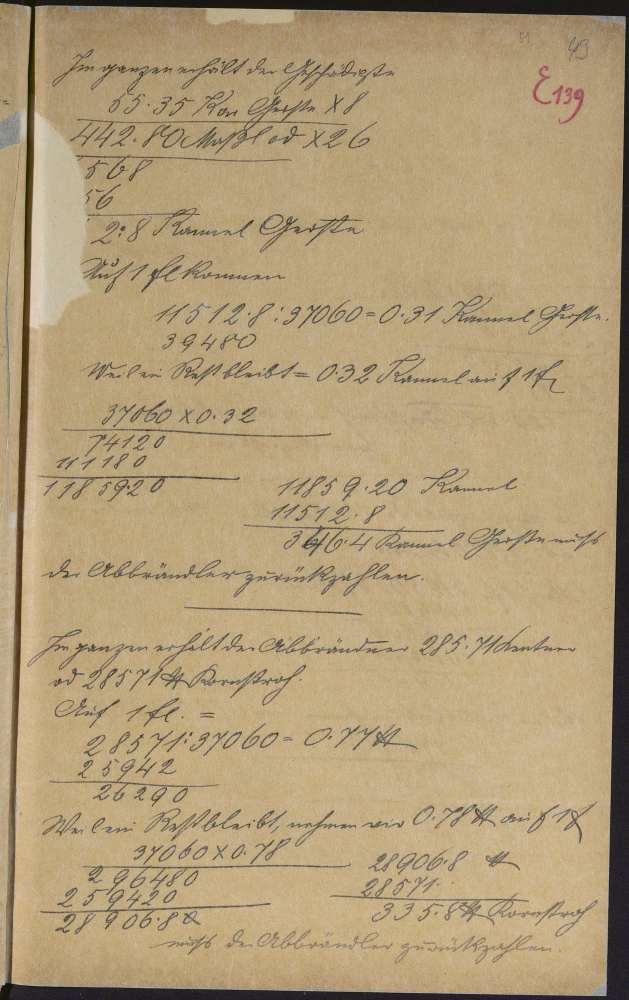 51 43
E 139
Im ganzen erhält der Geschädigte
55.35 Kor Gerste X 8
442.80 Maßl od X 26
568
56
2.8 Kannel Gerste
Auf 1 fl kommen
11512.8 : 37060 = 0.31 Kannel Gerste.
39480
Weil ein Rest bleibt = 0.32 Kannel auf 1 fl
37060 X 0.32
74120
111180
11859.20
11859.20 Kannel
11512.8
346.4 Kannel Gerste muß
der Abbrändler zurückzahlen.
Im ganzen erhält der Abbrändner 285.71 Zentner
od 28571 ℔ Kornstroh.
Auf 1 fl. =
28571 : 37060 = 0.77 ℔
25942
26290
Weil ein Rest bleibt, nehmen wir 0.78 ℔ auf 1 fl
37060 X 0.78
296480
259420
28906.80
28906.8 ℔
28571.
335.8 ℔ Kornstroh
muß der Abbrändler zurückzahlen.